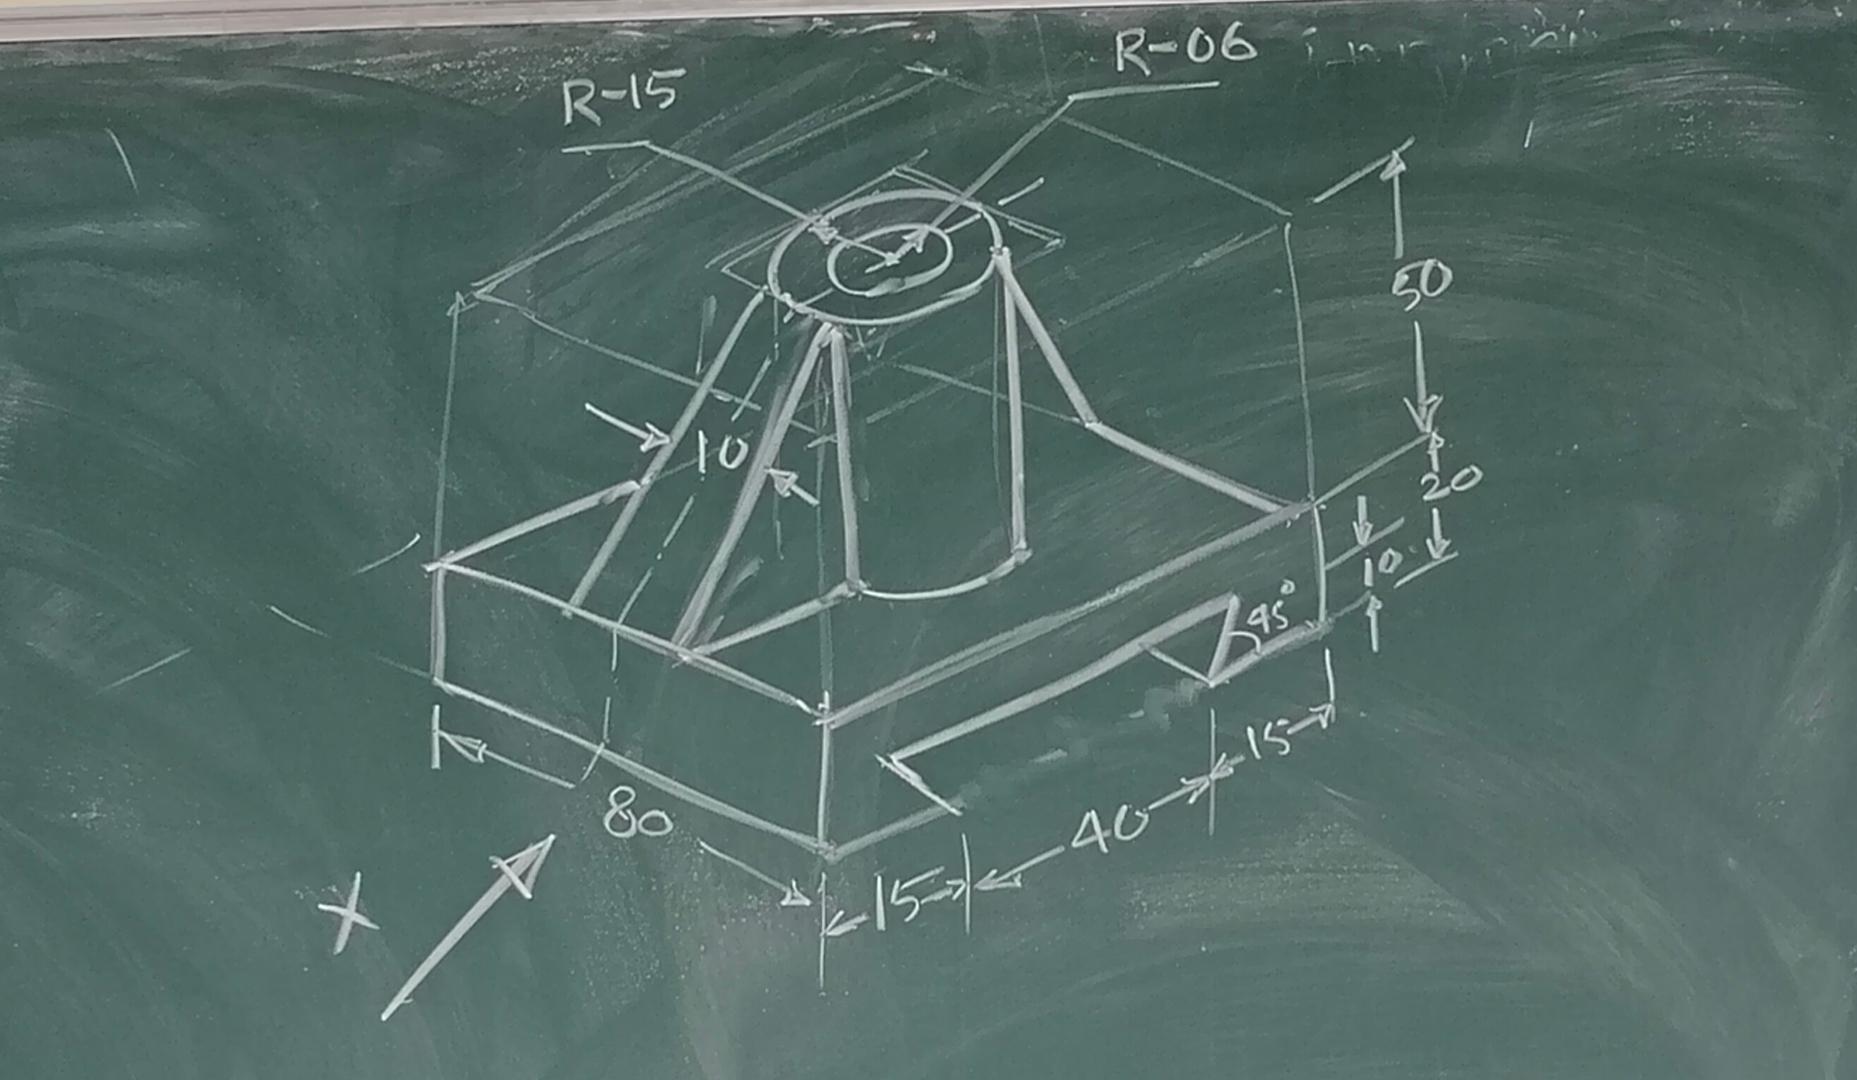 R-15
R-06
50
10
20
10
45°
15
80
40
15
X